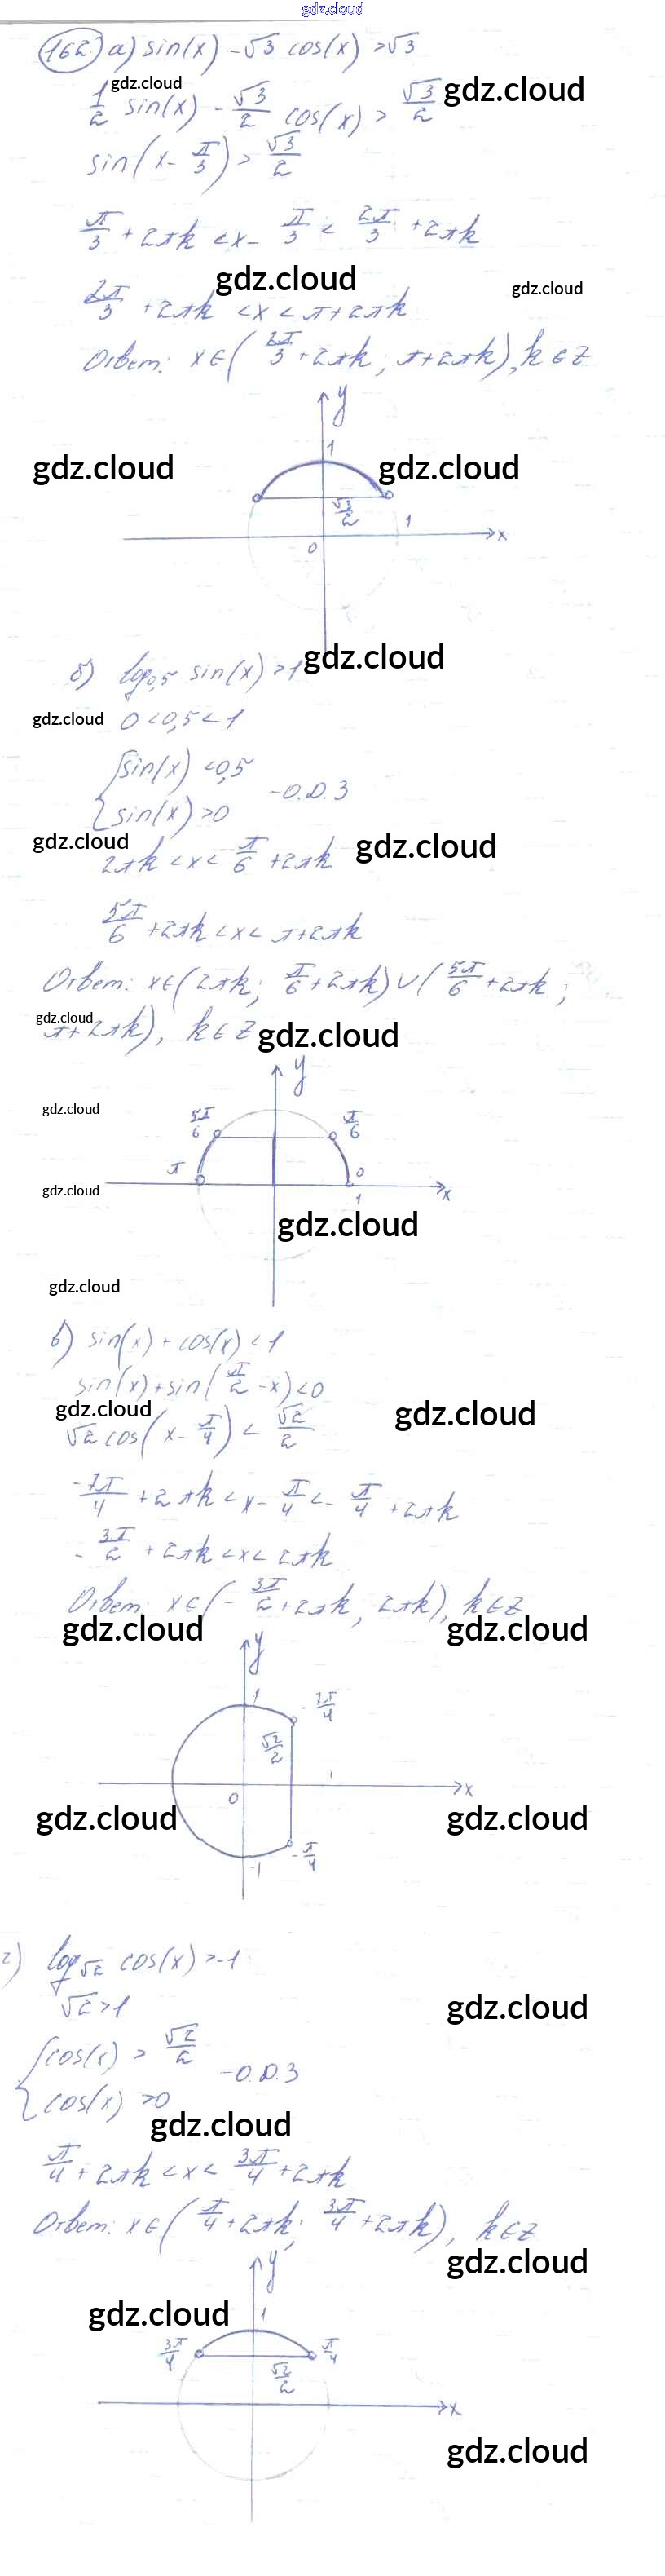 gdz.cloud
162) а) sin(x) - √3 cos(x) > √3
gdz.cloud
1/2 sin(x) - √3/2 cos(x) > √3/2
gdz.cloud
sin(x - π/3) > √3/2
π/3 + 2πk < x - π/3 < 2π/3 + 2πk
gdz.cloud
gdz.cloud
2π/3 + 2πk < x < π + 2πk
Ответ: x ∈ (2π/3 + 2πk; π + 2πk), k ∈ Z
y
1
gdz.cloud
gdz.cloud
√3/2
1
0
x
gdz.cloud
б) log0,5 sin(x) > 1
gdz.cloud
0 < 0,5 < 1
{ sin(x) < 0,5
sin(x) > 0
- О.Д.З
gdz.cloud
gdz.cloud
2πk < x < π/6 + 2πk
5π/6 + 2πk < x < π + 2πk
Ответ: x ∈ (2πk; π/6 + 2πk) ∪ (5π/6 + 2πk;
gdz.cloud
π + 2πk), k ∈ Z
gdz.cloud
y
gdz.cloud
5π/6
π/6
π
0
gdz.cloud
x
1
gdz.cloud
gdz.cloud
в) sin(x) + cos(x) < 1
sin(x) + sin(π/2 - x) < 0
gdz.cloud
gdz.cloud
√2 cos(x - π/4) < √2/2
-7π/4 + 2πk < x - π/4 < - π/4 + 2πk
- 3π/2 + 2πk < x < 2πk
Ответ: x ∈ (- 3π/2 + 2πk, 2πk), k ∈ Z
gdz.cloud
gdz.cloud
y
1
- 7π/4
√2/2
0
x
gdz.cloud
gdz.cloud
- π/4
-1
г) log√2 cos(x) > -1
√2 > 1
gdz.cloud
{ cos(x) > √2/2
cos(x) > 0
- О.Д.З
gdz.cloud
π/4 + 2πk < x < 3π/4 + 2πk
Ответ: x ∈ (π/4 + 2πk; 3π/4 + 2πk), k ∈ Z
gdz.cloud
y
gdz.cloud
1
3π/4
π/4
√2/2
x
gdz.cloud